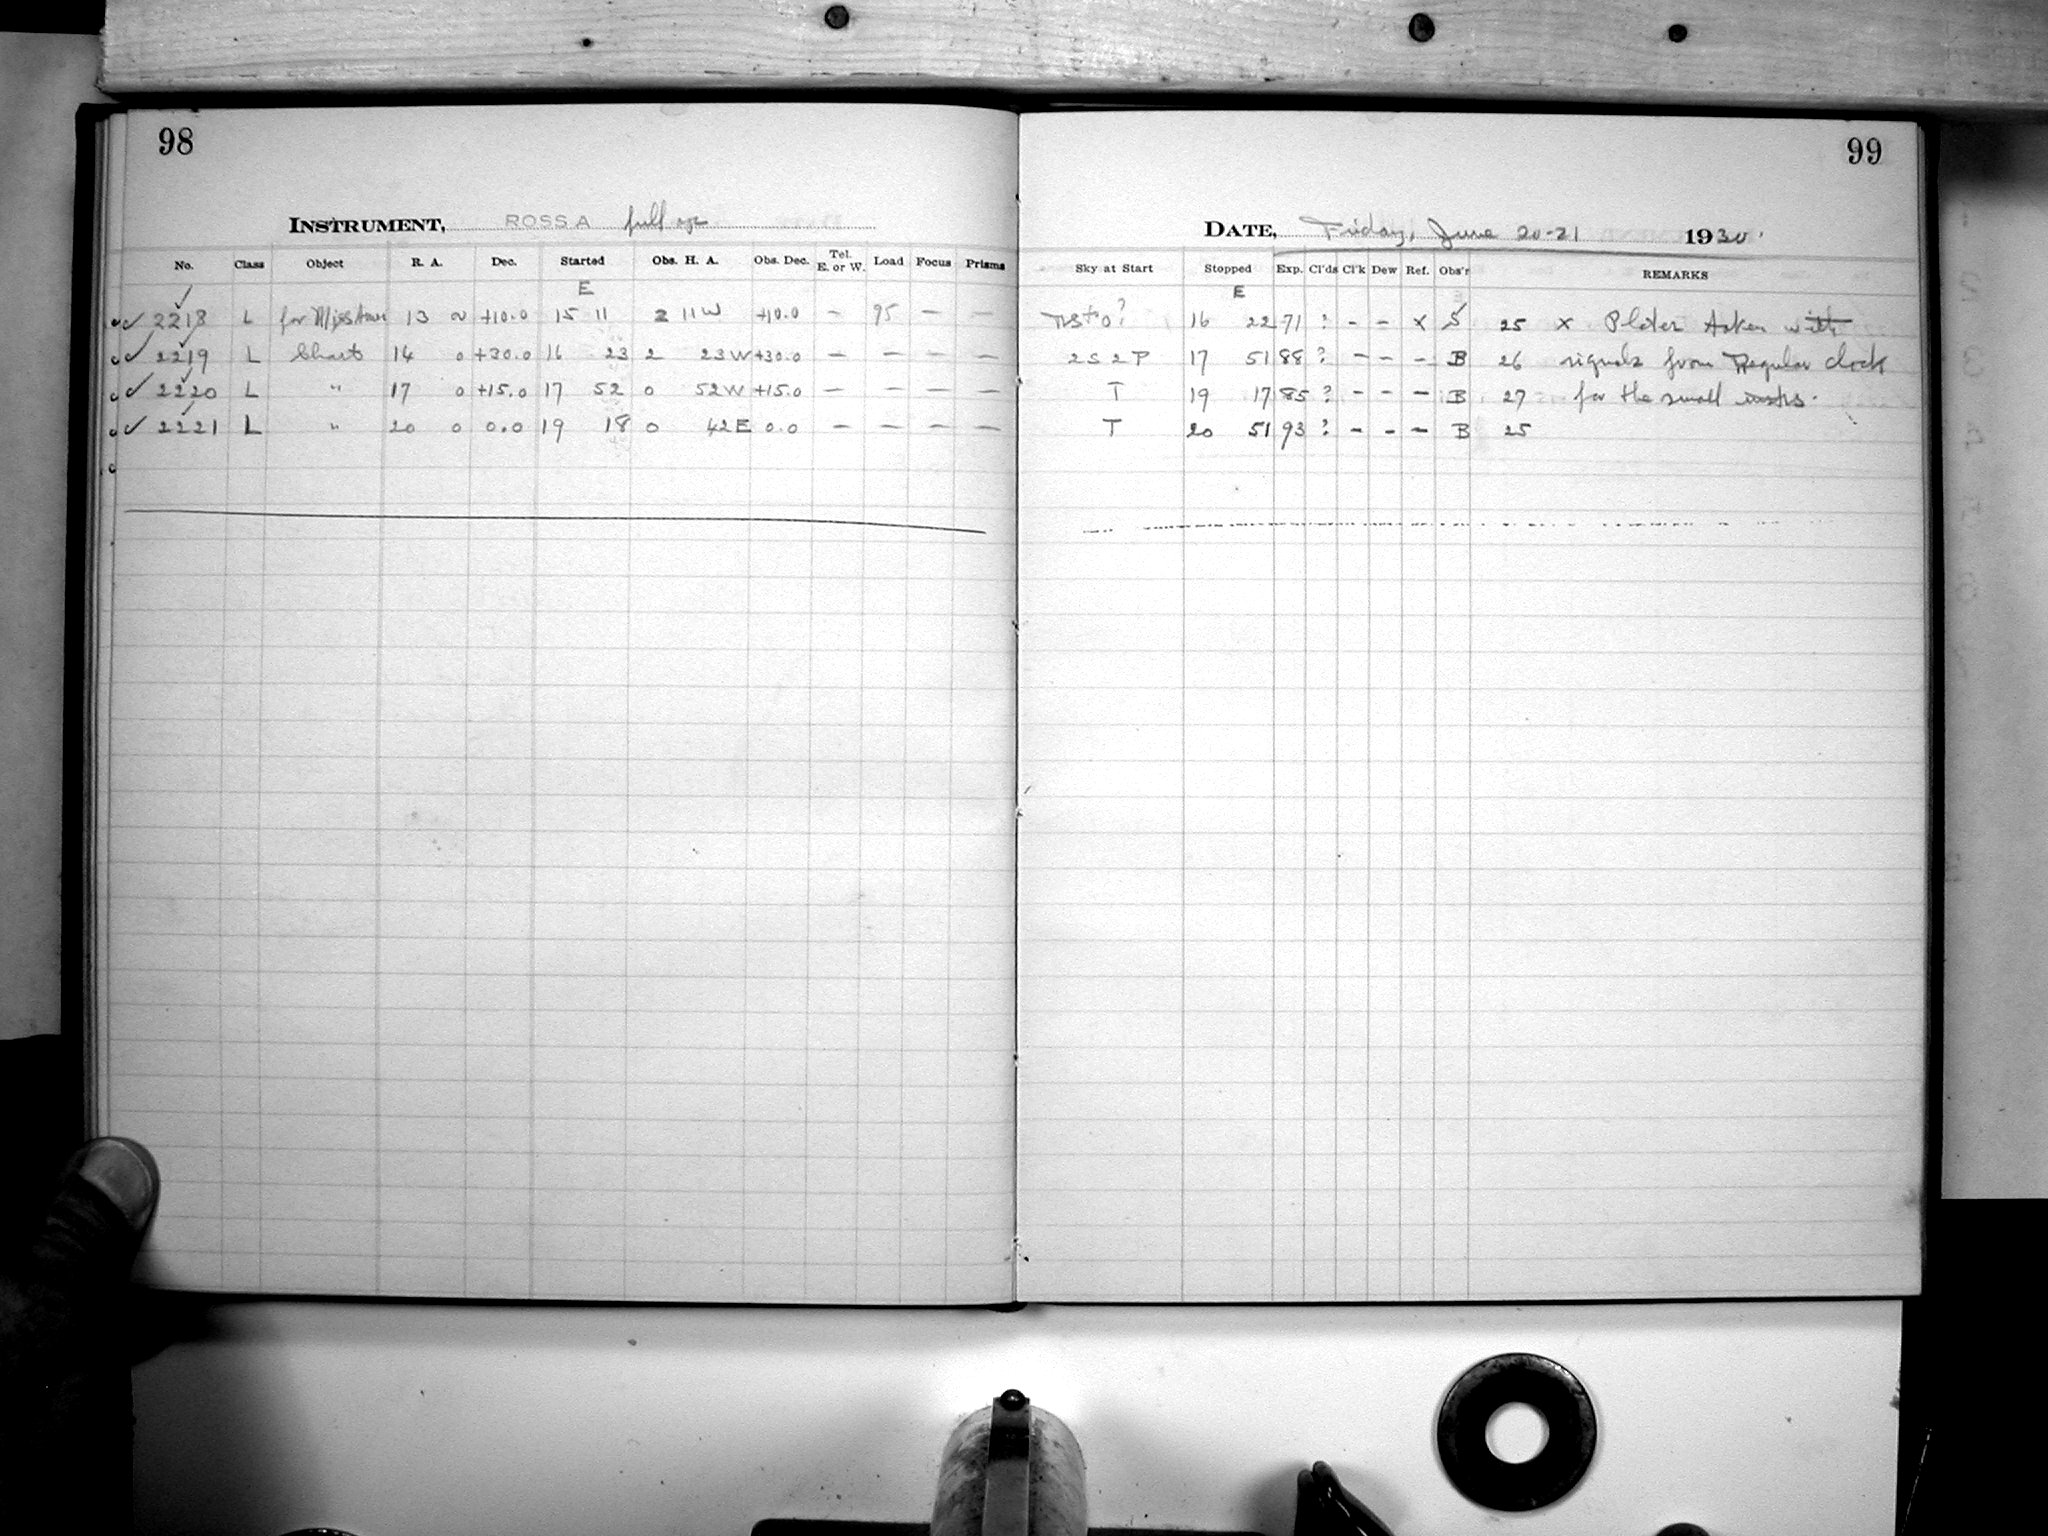 98
INSTRUMENT, ROSS A full
No. Class Object R. A. Dec. Started Obs. H. A. Obs. Dec. Tel. E. or W. Load Focus Prisms
E
2218 L for 13 +10.0 15 11 2 11 W +10.0 - 95 - -
2219 L Chart 14 0 +30.0 16 23 2 23 W +30.0 - - - -
2220 L " 17 0 +15.0 17 52 0 52 W +15.0 - - - -
2221 L " 20 0 0.0 19 18 0 42 E 0.0 - - - -
99
DATE, Friday, June 20-21 1930.
Sky at Start Stopped Exp. Cl'ds Cl'k Dew Ref. Obs'r REMARKS
E
16 22 71 ? - - x S 25 x Plates taken with
2 S 2 P 17 51 88 ? - - - B 26 signals from Regular clock
T 19 17 85 ? - - - B 27 for the small
T 20 51 93 ? - - - B 25